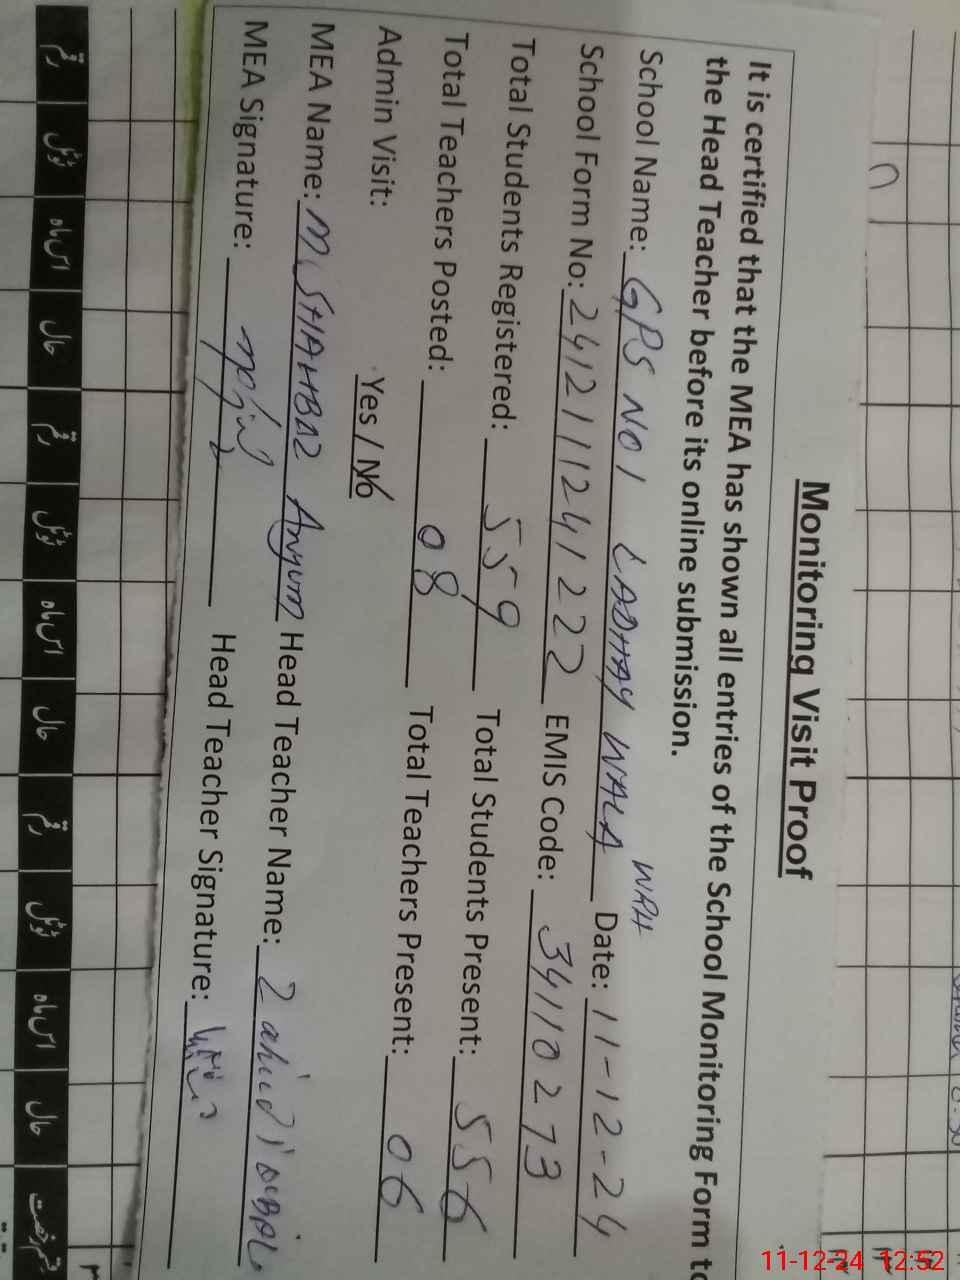 Monitoring Visit Proof
It is certified that the MEA has shown all entries of the School Monitoring Form to
the Head Teacher before its online submission.
School Name: GPS NO 1 LADHAY WALA WAH Date: 11-12-24
School Form No: 2412111241222 EMIS Code: 34110273
Total Students Registered: 559 Total Students Present: 556
Total Teachers Posted: 08 Total Teachers Present: 06
Admin Visit: Yes / No
MEA Name: M. SHAHBAZ Anyum Head Teacher Name: Zahid iqBAL
MEA Signature: Head Teacher Signature:
رقم ٹوٹل اس ماہ حال رقم ٹوٹل اس ماہ حال رقم ٹوٹل اس ماہ حال
11-12-24 12:52